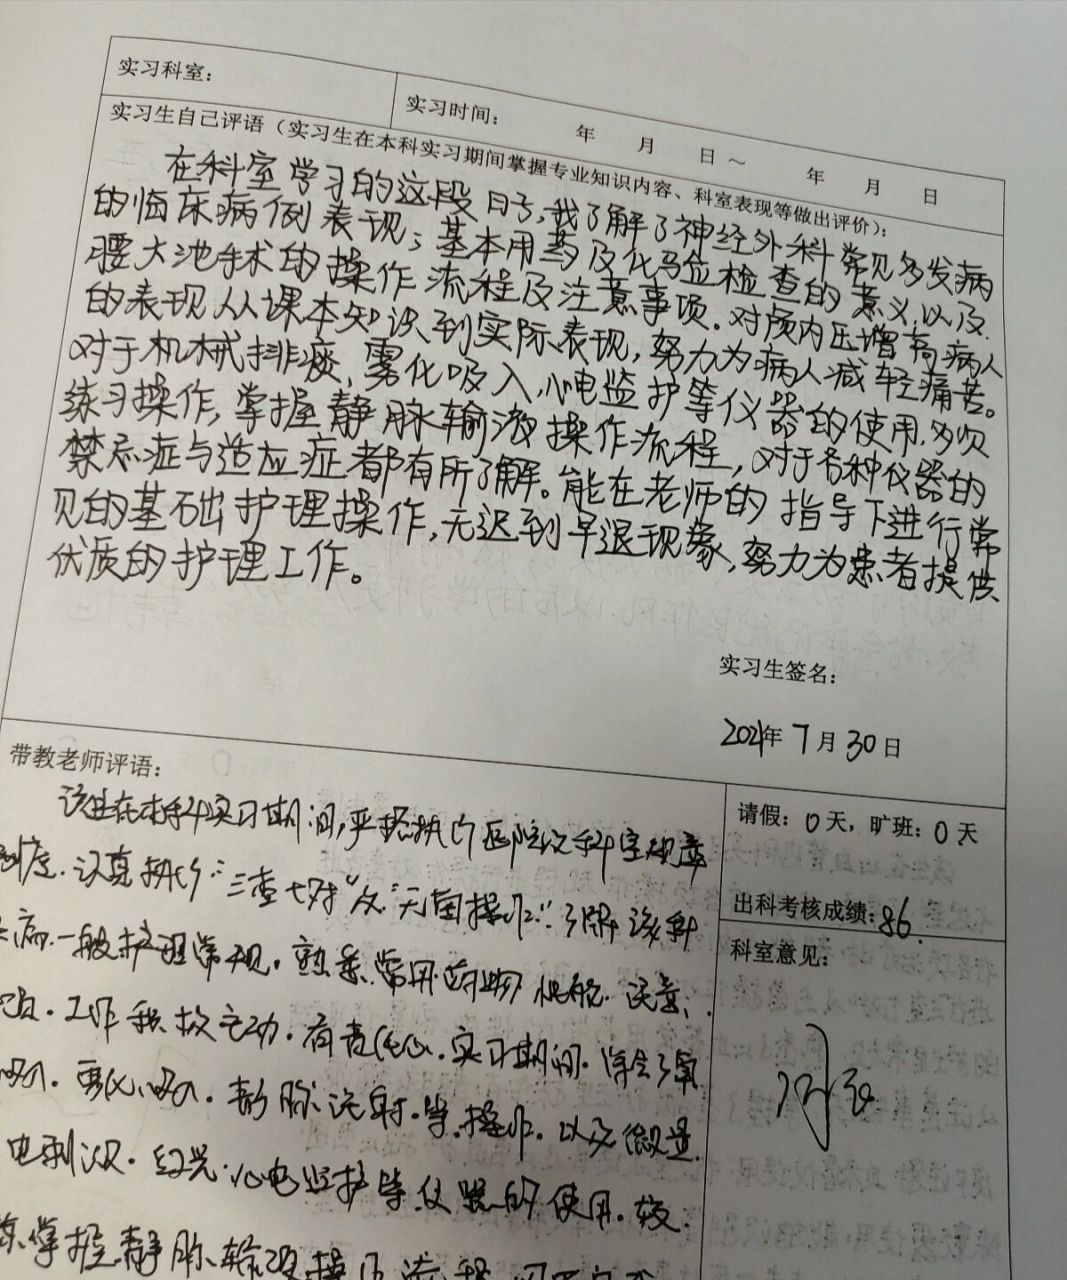 实习科室:
实习时间: 年 月 日~ 年 月 日
实习生自己评语（实习生在本科实习期间掌握专业知识内容、科室表现等做出评价）:
在科室学习的这段日子,我了解了神经外科常见多发病
的临床病例表现;基本用药及化马位检查的意义,以及
腰大池手术的操作流程及注意事项.对颅内压增高病人
的表现从课本知识到实际表现,努力为病人减轻痛苦。
对于机械排痰,雾化吸入,心电监护等仪器的使用,多次
练习操作,掌握静脉输液操作流程,对于各种仪器的
禁忌症与适应症都有所了解。能在老师的指导下进行常
见的基础护理操作,无迟到早退现象,努力为患者提供
优质的护理工作。
实习生签名:
2021年7月30日
带教老师评语:
该生在本科实习期间,严格执行医院及科室规章
制度.认真执行"三查七对"及"无菌操作".了解该科
病.一般护理常规.熟悉常用药物性能.注意
项.工作积极主动.有责任心.实习期间.学会了氧
吸入.雾化吸入.静脉注射.等操作.以及微量
电刺激.红光.心电监护等仪器的使用.较
掌握静脉输液操作流程
请假:0天,旷班:0天
出科考核成绩:86.
科室意见: